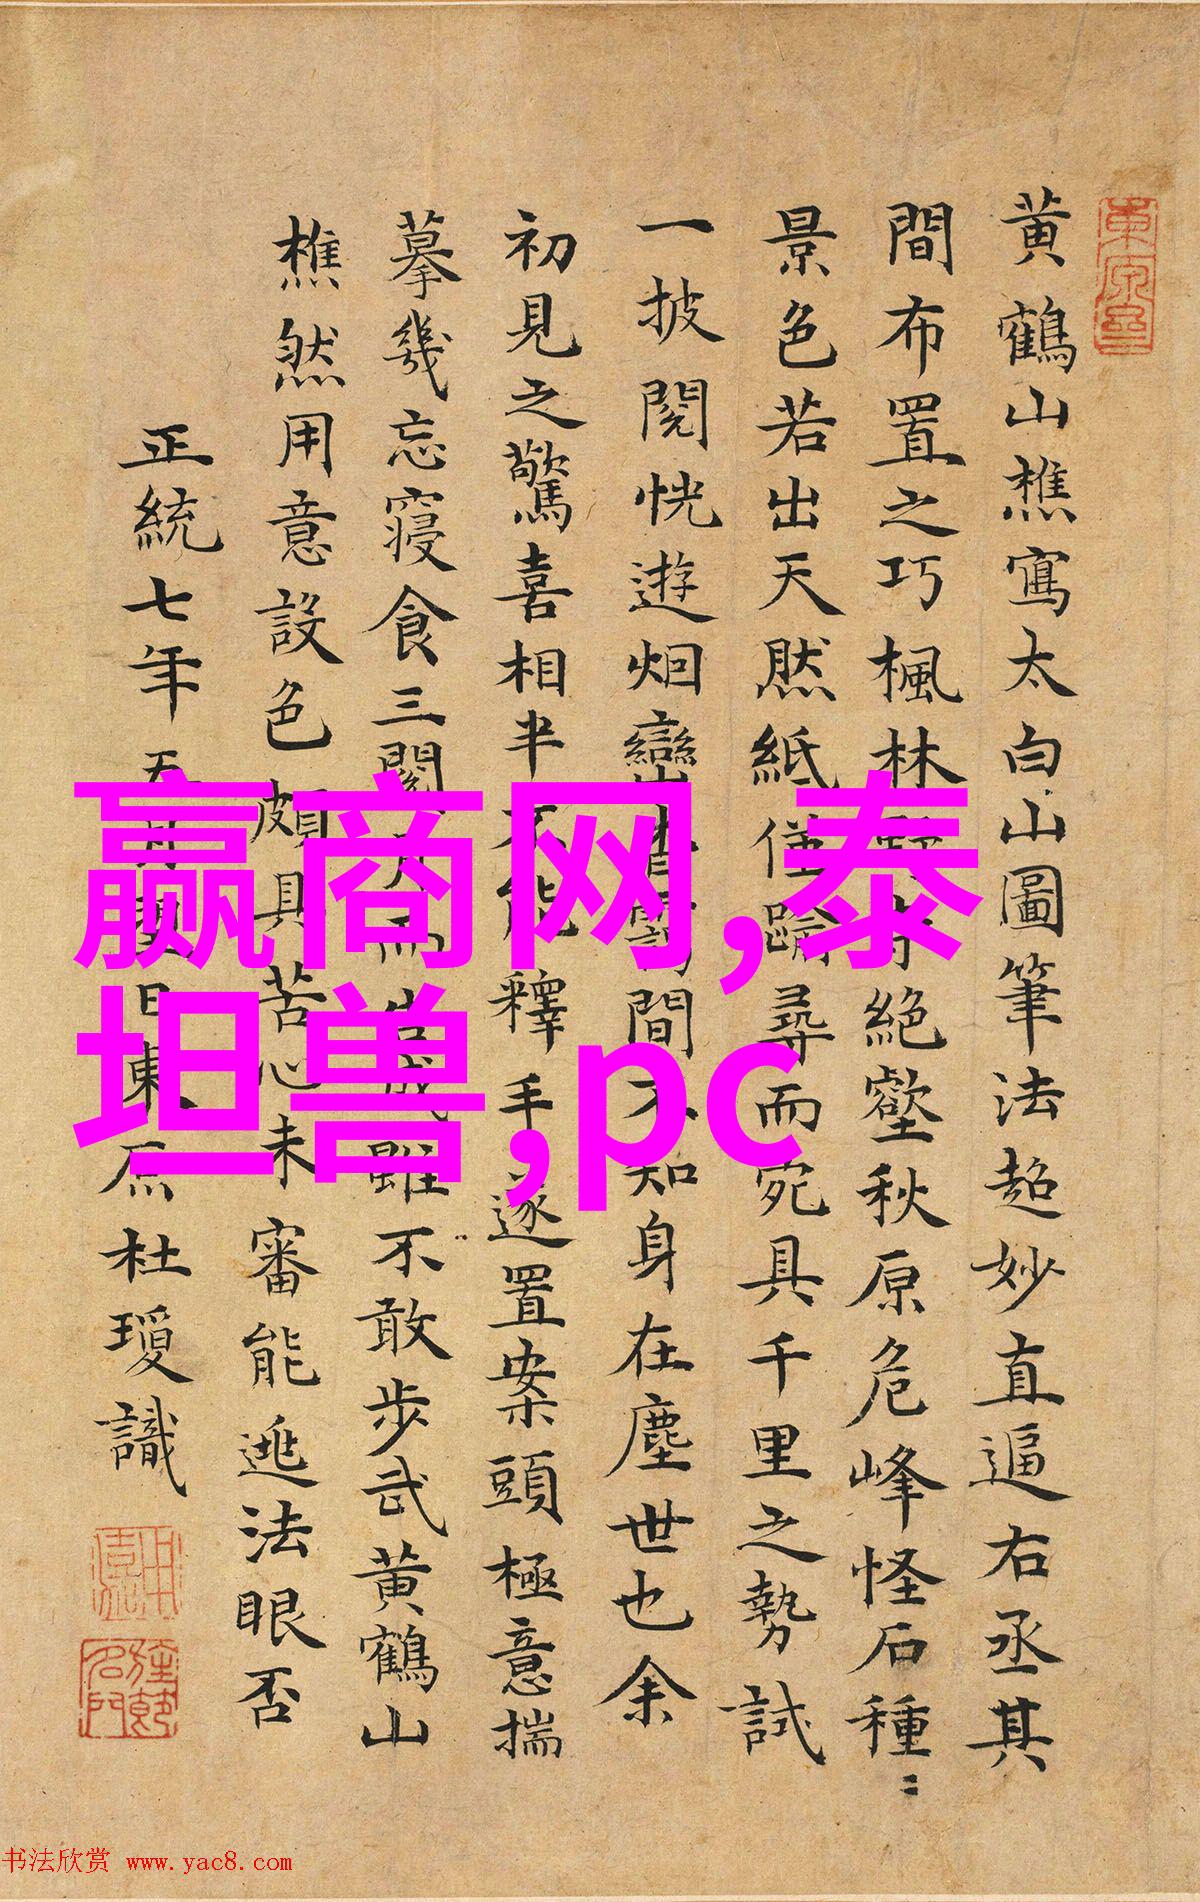 黄鶴山樵寫太白山圖筆法超妙直逼右丞其
間布置之巧楓林絕壑秋原危峰怪石種〻
景色若出天然紙僅踰尋而宛具千里之勢試
一披閱恍遊烟巒間不知身在塵世也余
初見之驚喜相半不能釋手遂置案頭極意揣
摹幾忘寢食三閱月而告成雖不敢步武黄鶴山
樵然用意設色頗具苦心未審能逃法眼否
正統七年五月日東原杜瓊識
赢商网,泰
坦兽,pc
书法欣赏 www.yac8.com